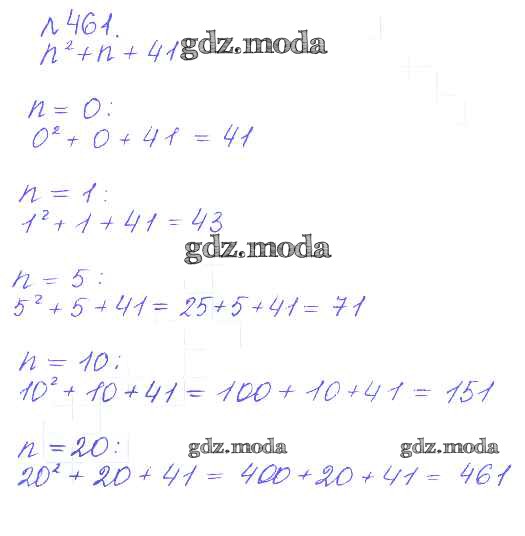 №461.
n² + n + 41 gdz.moda
n = 0:
0² + 0 + 41 = 41
n = 1:
1² + 1 + 41 = 43
gdz.moda
n = 5:
5² + 5 + 41 = 25 + 5 + 41 = 71
n = 10:
10² + 10 + 41 = 100 + 10 + 41 = 151
n = 20: gdz.moda gdz.moda
20² + 20 + 41 = 400 + 20 + 41 = 461